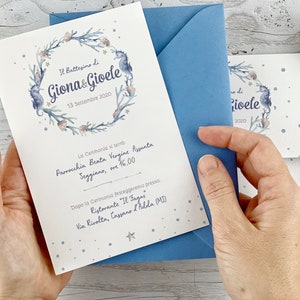 Il Battesimo di
Giona&Gioele
13 Settembre 2020
La Cerimonia si terrà
Parrocchia Beata Vergine Assunta
Seggiano, ore 16.00
Dopo la Cerimonia festeggeremo presso
Ristorante "Il Fagus"
Via Rivolta, Cassano d'Adda (MI)